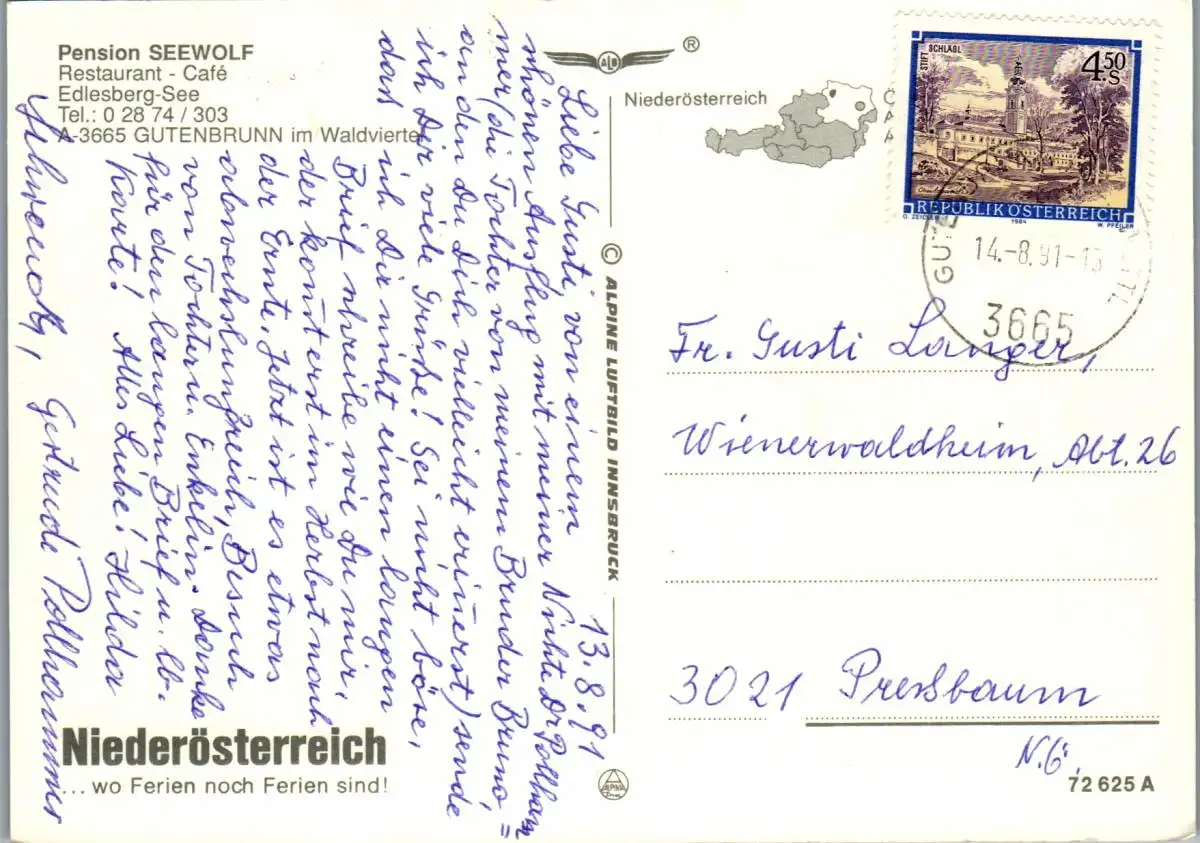 Pension SEEWOLF
Restaurant - Café
Edlesberg-See
Tel.: 0 28 74 / 303
A-3665 GUTENBRUNN im Waldviertel
ALB
®
Niederösterreich
STIFT SCHLÄGL
4,50 S
REPUBLIK ÖSTERREICH
1984
W. PFEILER
14.-8.91-13
3665
13.8.91
Liebe Gusti, von einem
schönen Ausflug mit meiner Nichte Dr. Pollham=
mer (die Tochter von meinem Bruder Bruno,
an den Du Dich vielleicht erinnerst) sende
ich Dir viele Grüße! Sei nicht böse,
dass ich Dir nicht einen langen
Brief schreibe wie Du mir,
der kommt erst im Herbst nach
der Ernte. Jetzt ist es etwas
abwechslungsreich, Besuch
von Tochter u. Enkelin. Danke
für den langen Brief u. lb.
Karte! Alles Liebe! Hilda
Gertrude Pollhammer
© ALPINE LUFTBILD INNSBRUCK
Fr. Gusti Langer,
Wienerwaldheim, Abt. 26
3021 Pressbaum
N.Ö.
Niederösterreich
... wo Ferien noch Ferien sind!
72 625 A